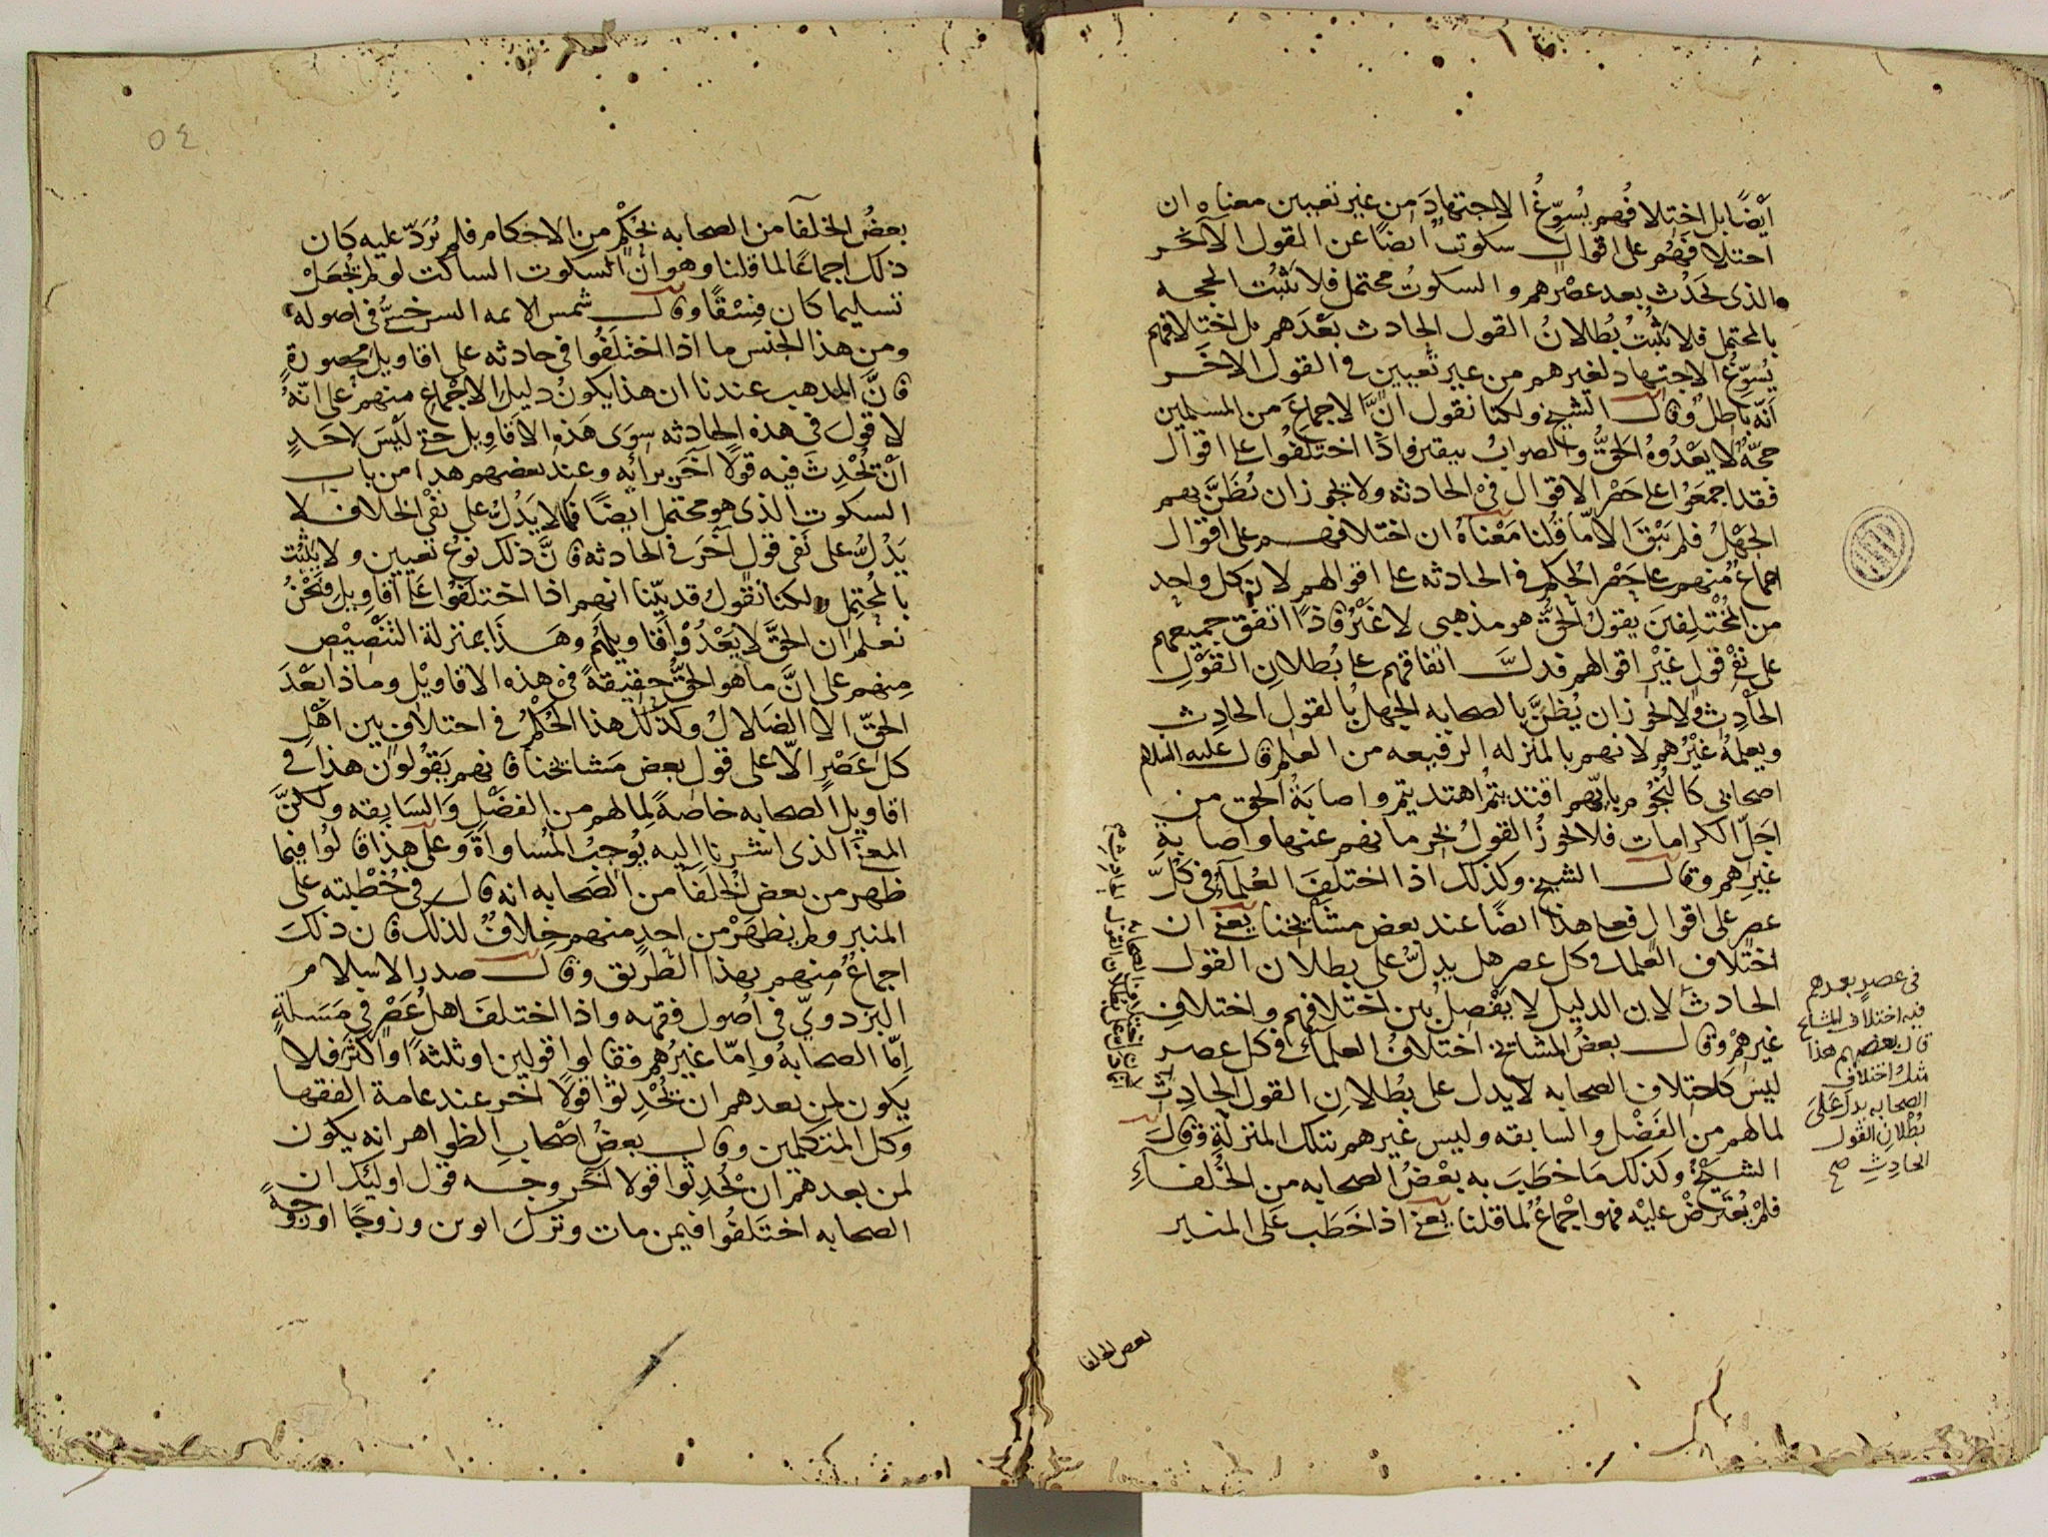 أيضًا بل اختلافهم يسوّغ الاجتهاد من غير تعيين معناه ان
اختلافهم على اقوال سكوت ايضًا عن القول الآخر
والذى يحدث بعد عصرهم والسكوت محتمل فلا يثبت الحجه
بالمحتمل فلا يثبت بطلان القول الحادث بعدهم بل اختلافهم
يسوّغ الاجتهاد لغيرهم من غير تعيين فى القول الاخر
انّه باطل وقال الشيخ ولكنا نقول انّ الاجماع من المسلمين
حجّة لا يعدوه الحقّ والصواب بيقين واذا اختلفوا على اقوال
فقد اجمعوا على حصر الاقوال فى الحادثه ولا يجوز ان يظنّ بهم
الجهل فلم يبق الا ما قلنا معناه ان اختلافهم على اقوال
اجماع منهم على حصر الحكم فى الحادثه على اقوالهم لان كل واحد
من المختلفين يقول الحقّ هو مذهبى لا غير فاذا اتفق جميعهم
على نفى قول غير اقوالهم فدلّ اتفاقهم على بطلان القول
الحادث ولا يجوز ان يظنّ بالصحابه الجهل بالقول الحادث
ويعلمه غيرهم لانهم بالمنزله الرفيعه من العلم قال عليه السلام
اصحابى كالنجوم بايّهم اقتديتم اهتديتم واصابة الحق من
اجلّ الكرامات فلا يجوز القول بحرمانهم عنها واصابة
غيرهم وقال الشيخ وكذلك اذا اختلف العلماء فى كلّ
عصر على اقوال فعلى هذا ايضًا عند بعض مشايخنا يعنى ان
اختلاف العلماء فى كل عصر هل يدلّ على بطلان القول
الحادث لان الدليل لا يفصل بين اختلافهم واختلاف
غيرهم وقال بعض المشايخ اختلاف العلماء فى كل عصر
ليس كاختلاف الصحابه لا يدل على بطلان القول الحادث
لما لهم من الفضل والسابقه وليس غيرهم بتلك المنزلة وقال
الشيخ وكذلك ما خطب به بعض الصحابه من الخلفاء
فلم يعترض عليه فهو اجماع لما قلنا يعنى اذا خطب على المنبر
فى عصر بعدهم
فيه اختلاف المشايخ
قال بعضهم هذا
مثل اختلاف
الصحابه يدل على
بطلان القول
الحادث صح
بعض الخلفا
٥٤
بعض الخلفآ من الصحابه بحكم من الاحكام فلم يردّ عليه كان
ذلك اجماعًا لما قلنا وهو انّ السكوت الساكت لو لم يجعل
تسليما كان فسقًا وقال شمس الايمه السرخسىّ فى اصوله
ومن هذا الجنس ما اذا اختلفوا فى حادثه على اقاويل محصورة
فانّ المذهب عندنا ان هذا يكون دليل الاجماع منهم على انّه
لا قول فى هذه الحادثه سوى هذه الاقاويل حتى ليس لاحد
أن يحدث فيه قولا آخر برائه وعند بعضهم هذا من باب
السكوت الذى هو محتمل ايضًا فكما لا يدلّ على نفى الخلاف لا
يدلّ على نفى قول آخر فى الحادثه فانّ ذلك نوع تعيين ولا يثبت
بالمحتمل ولكنا نقول قد بيّنا انهم اذا اختلفوا على اقاويل فنحن
نعلم ان الحقّ لا يعدو اقاويلهم وهذا بمنزلة التنصيص
منهم على انّ ما هو الحقّ حقيقةً فى هذه الاقاويل وماذا بعد
الحقّ الا الضلال وكذلك هذا الحكم فى اختلاف بين اهل
كل عصر الّا على قول بعض مشايخنا فانهم يقولون هذا فى
اقاويل الصحابه خاصةً لما لهم من الفضل والسابقه ولكنّ
المعنى الذى اشرنا اليه يوجب المساواة وعلى هذا قالوا فيما
ظهر من بعض الخلفا من الصحابه انه قال فى خطبته على
المنبر ولم يظهر من احد منهم خلاف لذلك فان ذلك
اجماع منهم بهذا الطريق وقال صدر الاسلام
البزدوىّ فى اصول فقهه واذا اختلف اهل عصر فى مسئلة
امّا الصحابة وامّا غيرهم فقالوا قولين او ثلثة او اكثر فلا
يكون لمن بعدهم ان يحدثوا قولا آخر عند عامة الفقها
وكل المتكلمين وقال بعض اصحاب الظواهر انه يكون
لمن بعدهم ان يحدثوا قولا آخر وجه قول اوليك ان
الصحابه اختلفوا فيمن مات وترك ابوين وزوجًا او زوجةً